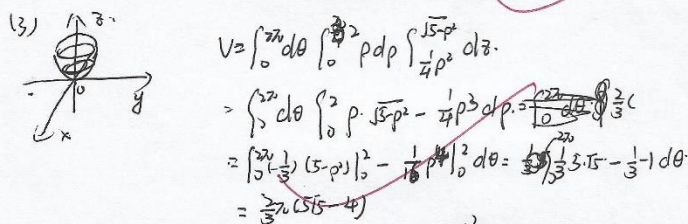 (3) z y x 0
V=∫₀^{2π}dθ ∫₀^{2} ρdρ ∫_{¼ρ²}^{√5-ρ²} dz.
= ∫₀^{2π}dθ ∫₀^{2} ρ·√5-ρ² - ¼ρ³ dρ. = 2/3 (
= ∫₀^{2π} (-⅓) (5-ρ²)|₀² - 1/16 ρ⁴|₀² dθ = ∫₀^{2π} ⅓ 5·√5 - ⅓ -1 dθ
= ⅔π(5√5-4)